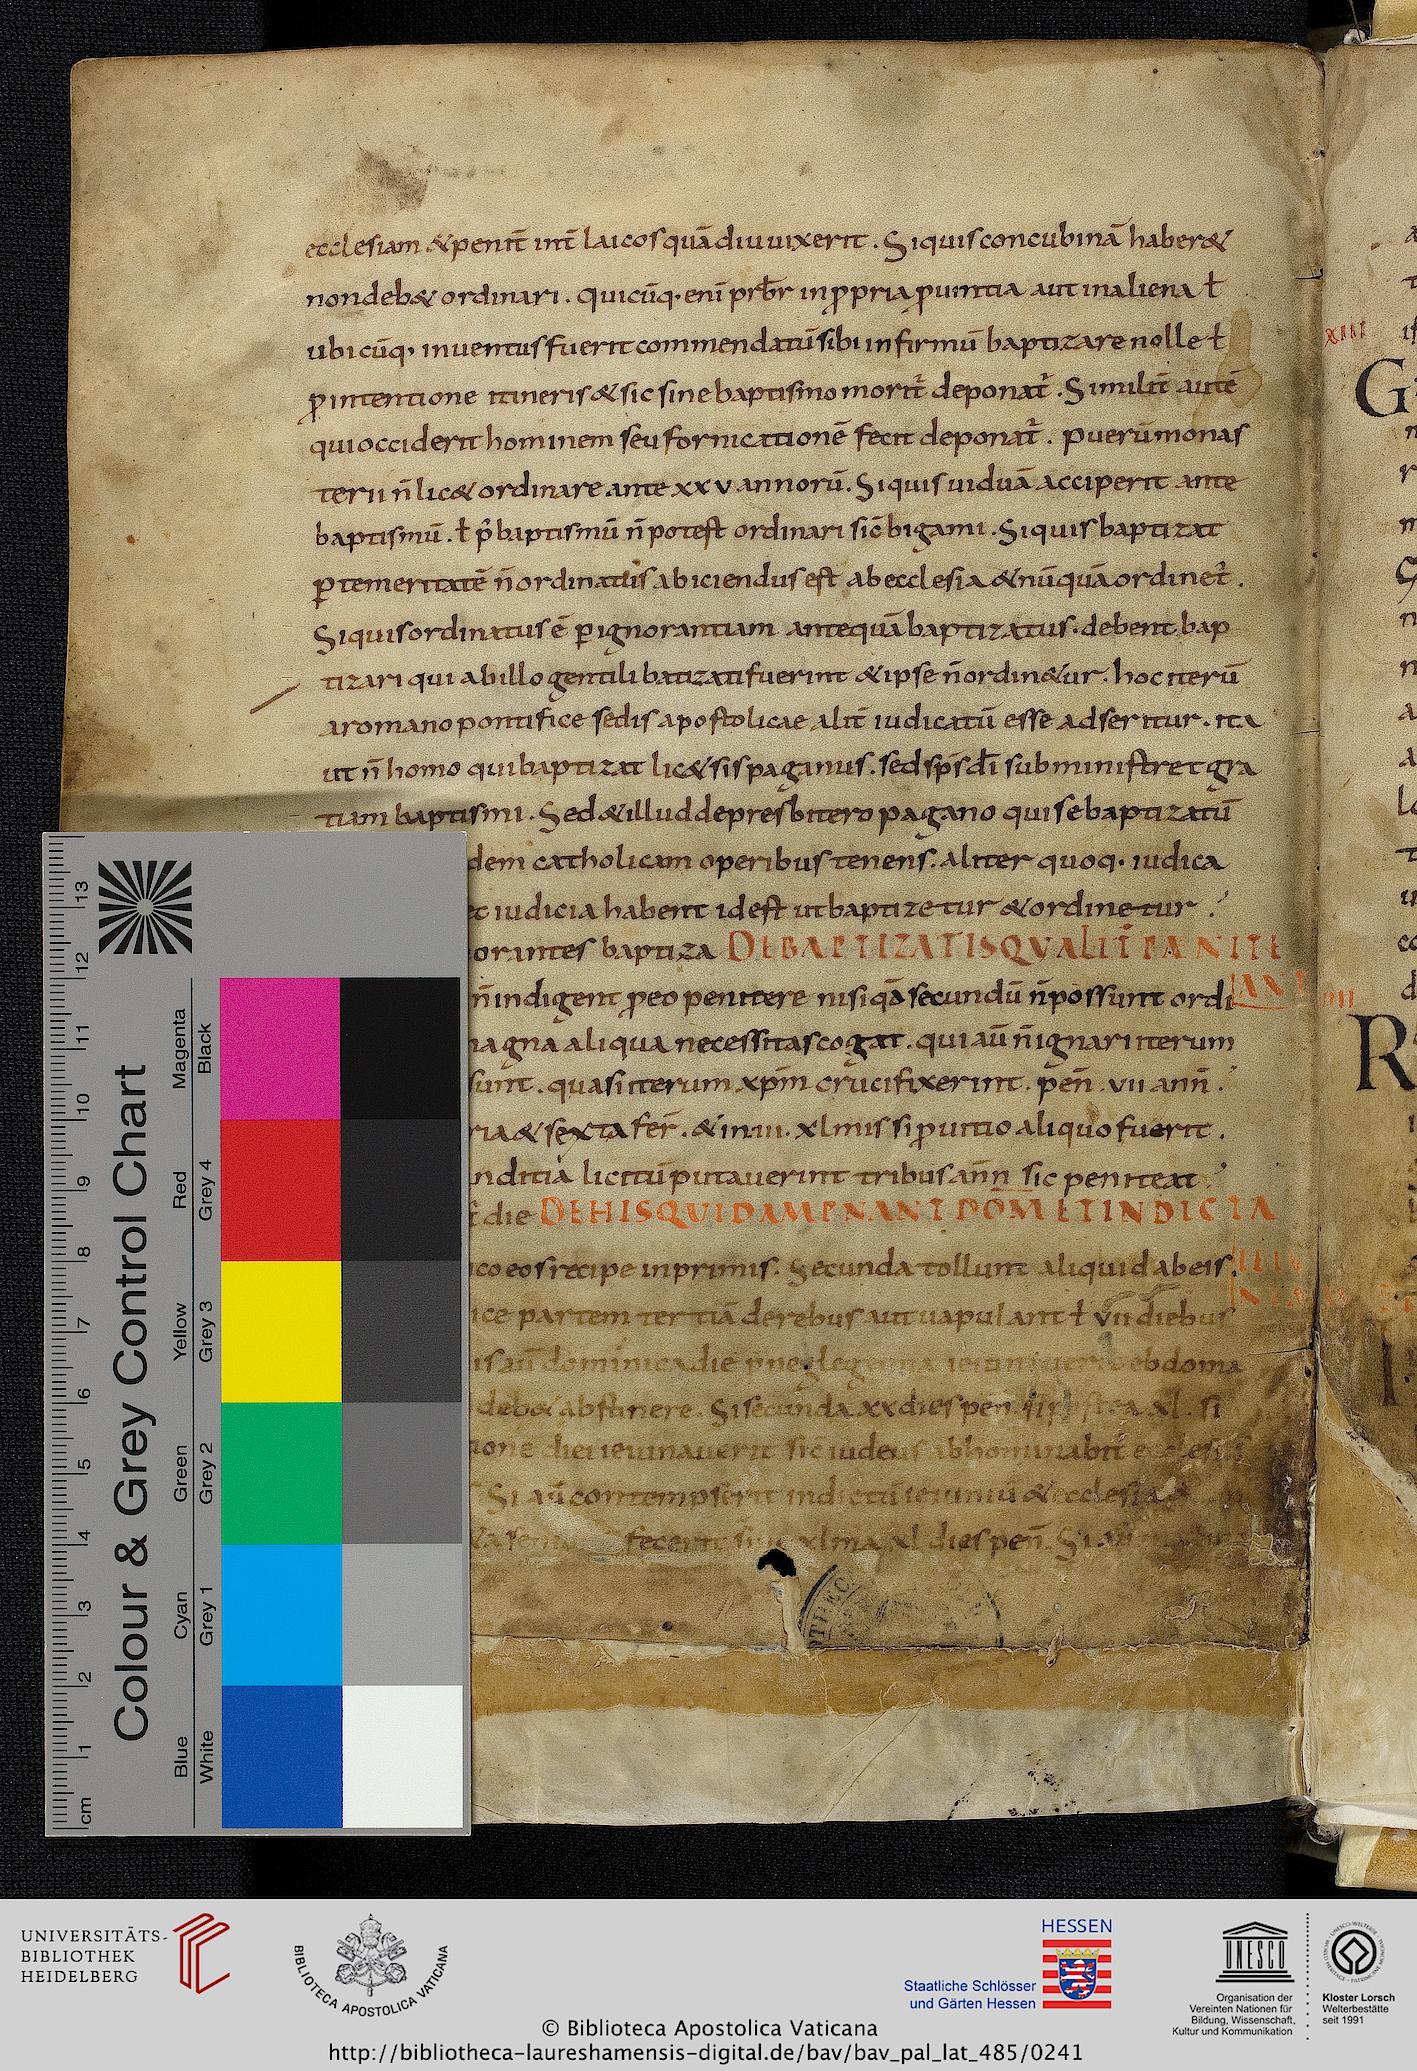 ecclesiam & penit̄ int̄ laicos quā diu uixerit . Siquis concubinā haber&
non deb& ordinari . quicūq· enī prb̄r in ꝓpria ꝓuintia aut in aliena ł
ubicūq· inuentus fuerit commendatū sibi infirmū baptizare nolle ł
ꝓ intentione itineris & sic sine baptismo morit̄ deponat̄ . Similit̄ autē
qui occiderit hominem seu fornicationē fecit deponat̄ . puerū monas
terii n̄ lic& ordinare ante xxv annorū . Siquis uiduā acciperit ante
baptismū . ł p̄ baptismū n̄ potest ordinari sic̄ bigami . Siquis baptizat
ꝑ temeritatē n̄ ordinatus abiciendus est ab ecclesia & nūquā ordinet̄ .
Siquis ordinatus ē ꝑ ignorantiam antequā baptizatus · debent bap
tizari qui ab illo gentili batizati fuerint & ipse n̄ ordin&ur . hoc iterū
a romano pontifice sedis apostolicae alit̄ iudicatū esse adseritur . ita
ut n̄ homo qui baptizat lic& sis paganus . sed sps̄ dī subministret gra
tiam baptismi . Sed & illud de presbitero pagano qui se baptizatū
dem catholicam operibus tenens . aliter quoq· iudica
et iudicia habent idest ut baptizetur & ordinetur .
orantes baptiza DE BAPTIZATIS QUALIT̄ PÆNITE
n̄ indigent ꝓ eo penitere nisi qā secundū n̄ possunt ordi ANT
magna aliqua necessitas cogat . qui aū n̄ ignari iterum
sunt . quasi iterum xpm̄ crucifixerint . pen̄ . vii ann̄ .
ria & sexta fer̄ . & in iii . xlmis si ꝓ uitio aliquo fuerit .
nditia licitū putauerint tribus ann̄ sic peniteat
die DE HIS QUI DAMPNANT DOM̄ ET INDICTA
co eos recipe in primis . Secunda tollunt aliquid ab eis .
ice partem tertiā de rebus aut uapulant ł vii diebus
is aū dominica die
deb& abstinere . Si secunda xx dies pen̄ . si postea xl . si
ione diei ieiunauerit sic̄ iudeus abhominabit̄
Si aū contempserit indictū ieiuniū & ecclesiae
fecerit sine xlma xl dies pen̄ . Si aū
XIII
G
R
Colour & Grey Control Chart
Blue Cyan Green Yellow Red Magenta
White Grey 1 Grey 2 Grey 3 Grey 4 Black
cm 1 2 3 4 5 6 7 8 9 10 11 12 13
UNIVERSITÄTS-
BIBLIOTHEK
HEIDELBERG
BIBLIOTECA APOSTOLICA VATICANA
HESSEN
Staatliche Schlösser
und Gärten Hessen
UNESCO
Organisation der
Vereinten Nationen für
Bildung, Wissenschaft,
Kultur und Kommunikation
Kloster Lorsch
Welterbestätte
seit 1991
© Biblioteca Apostolica Vaticana
http://bibliotheca-laureshamensis-digital.de/bav/bav_pal_lat_485/0241